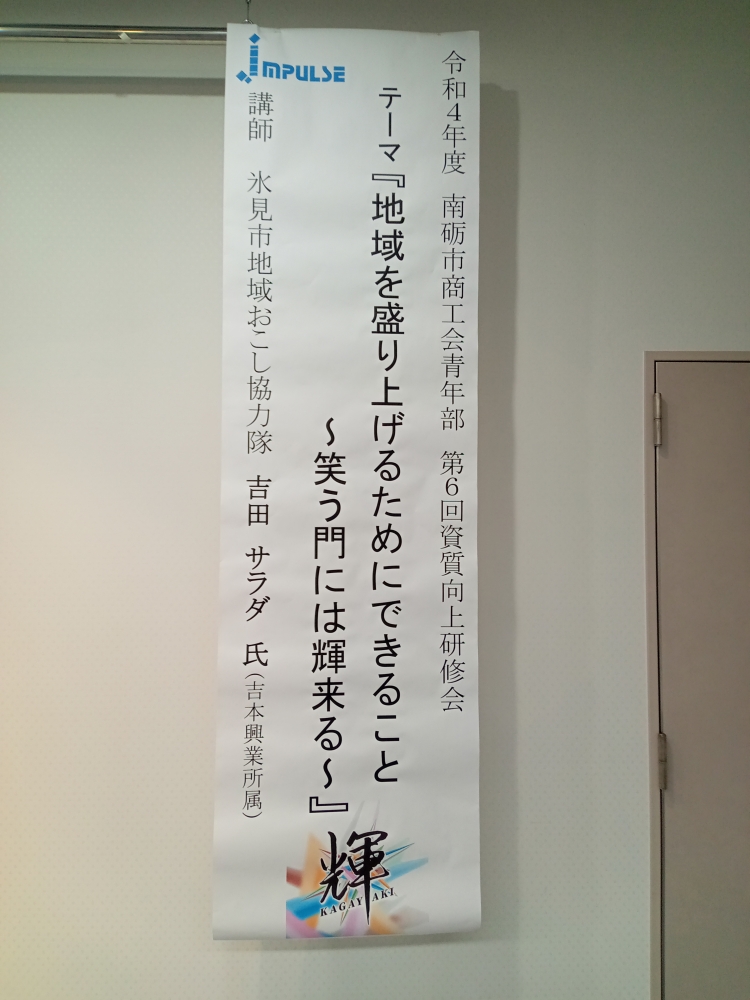 令和4年度　南砺市商工会青年部　第6回資質向上研修会
テーマ『地域を盛り上げるためにできること
～笑う門には輝来る～』
講師　氷見市地域おこし協力隊　吉田　サラダ　氏（吉本興業所属）
IMPULSE
輝
KAGAYAKI